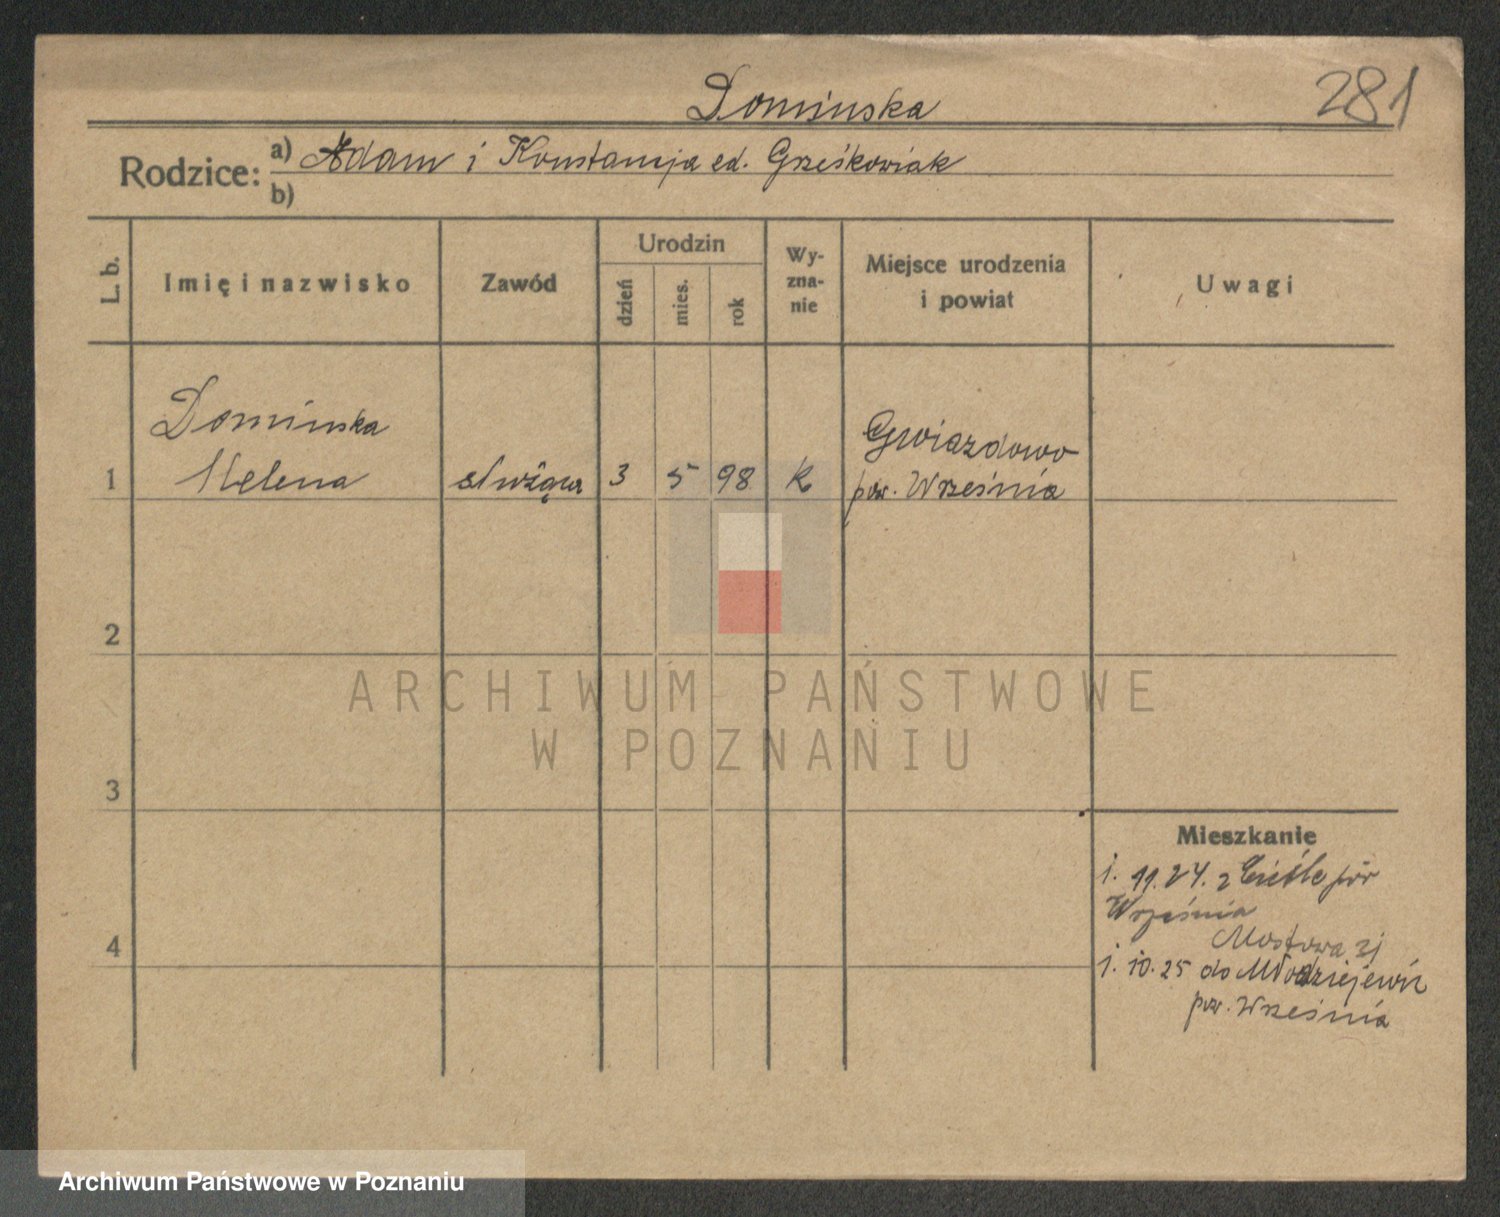 Dominska
281
Rodzice:
a) Adam i Konstancja ed. Grześkowiak
b)
L. b.
Imię i nazwisko
Zawód
Urodzin
dzień
mies.
rok
Wy-
zna-
nie
Miejsce urodzenia
i powiat
Uwagi
Dominska
Helena
1
służąca
3
5
98
k
Gwiazdowo
pow. Września
2
3
4
Mieszkanie
1. 11. 24. z pow
Września
Mostowa
1. 10. 25 do Młodziejewic
pow. Września
ARCHIWUM PAŃSTWOWE
W POZNANIU
Archiwum Państwowe w Poznaniu